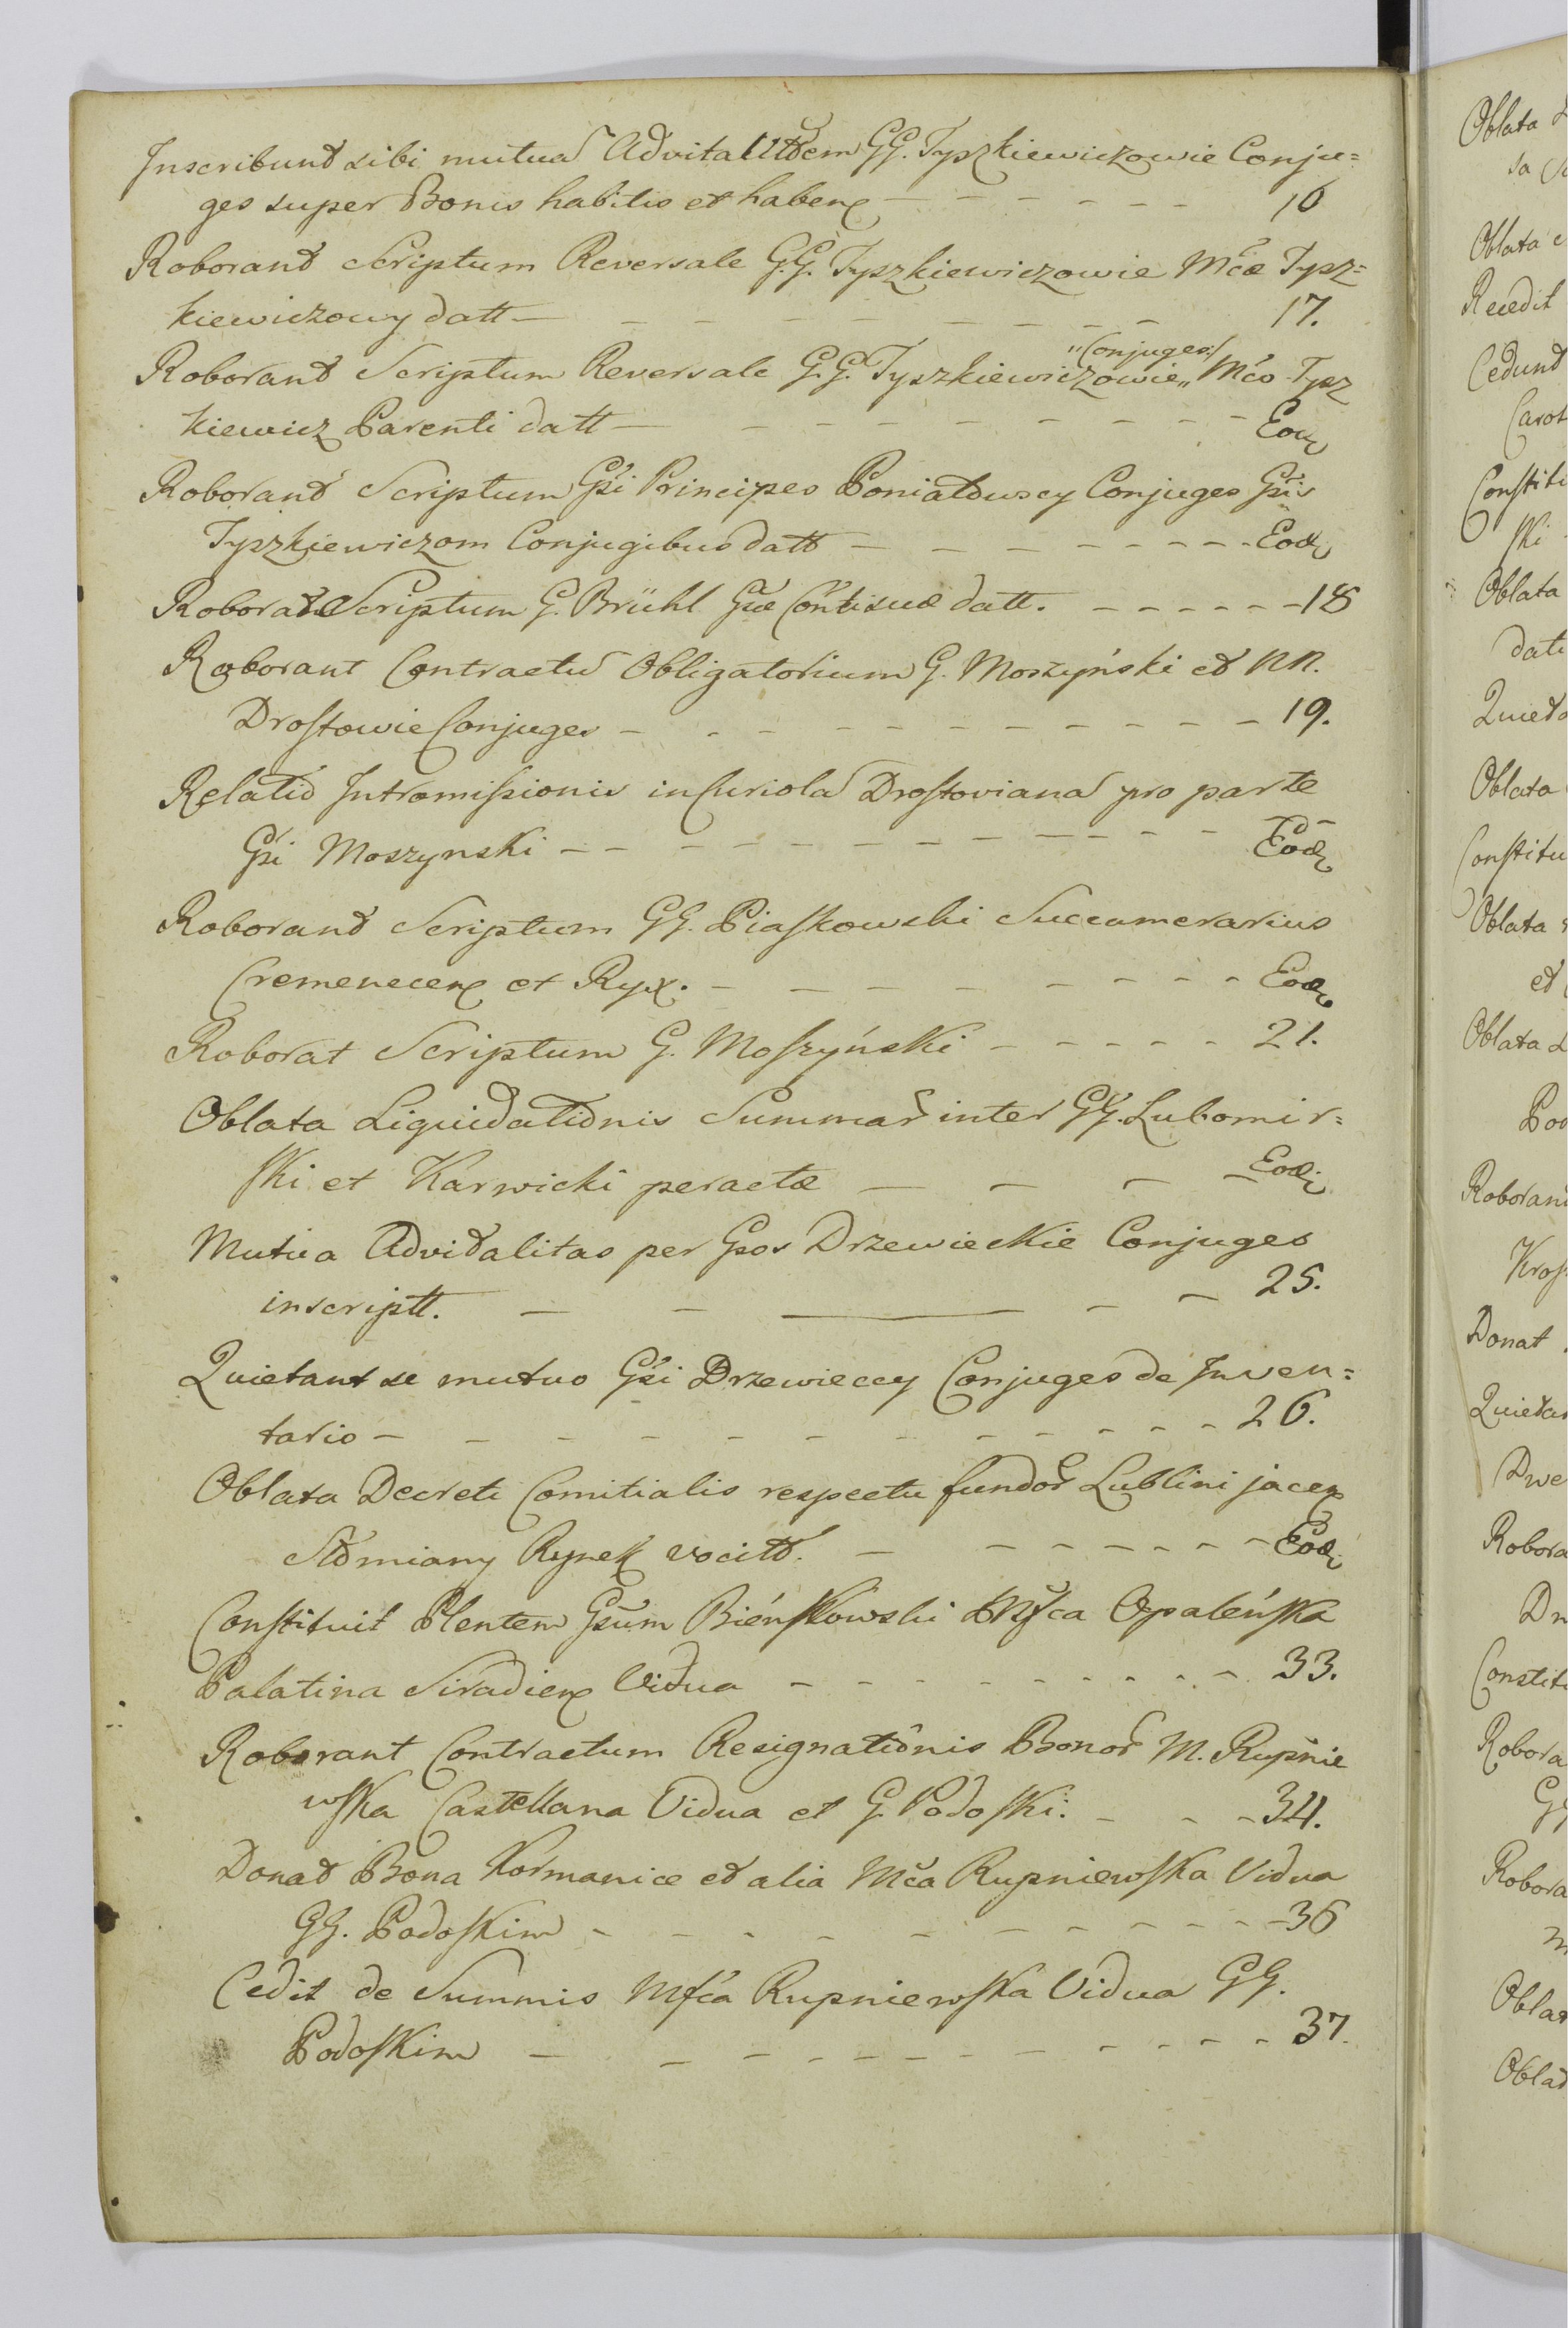 Inscribunt sibi mutua Advitalitem GG. Tyszkiewiczowie Conju=
ges super Bonis habitis et haben 16
Roborant Scriptum Reversale G.G. Tyszkiewiczowie Mcae Tysz=
kiewiczowy datt 17.
Roborant Scriptum Reversale G.G. Tyszkiewiczowie „Conjuges/ Mco Tysz
kiewicz Parenti datt Eod
Roborant Scriptum Gsi Principes Poniatowscy Conjuges Gsis
Tyszkiewiczom Conjugibus datt Eod
Roborat Scriptum G. Brühl Gae Contisuae datt. 18
Roborant Contractu Obligatorium G. Moszyński et NN.
Drostowie Conjuges 19.
Relatio Intromissionis in Curiola Drostoviana pro parte
Gsi Moszynski Eod
Roborant Scriptum GG. Piaskowski Succamerarius
Cremenecen et Ryx. Eod
Roborat Scriptum G. Moszyński 21.
Oblata Liquidationis Summar inter GG. Lubomir=
ski et Karwicki peractae Eod
Mutua Advitalitas per Gsos Drzewieckie Conjuges
inscriptt. 25.
Quietant se mutuo Gsi Drzewieccy Conjuges de Inven=
tario 26.
Oblata Decreti Comitialis respectu fundor Lublini jacen
Słomiany Rynek vocitt. Eod
Constituit Plentem Gsum Bieńskowski Mfca Opaleńska
Palatina Siradien Vidua 33.
Roborant Contractum Resignationis Bonor M. Rupnie
wska Castellana Vidua et G. Podoski. 34.
Donat Bona Kormanice et alia Mca Rupniewska Vidua
GG. Podoskim 36
Cedit de Summis Mfca Rupniewska Vidua GG.
Podoskim 37.
Oblata
Oblata
Recedit
Cedunt
Constiti
ski
Oblata
Oblata
Constitu
Oblata
et
Oblata
Donat
Constiti